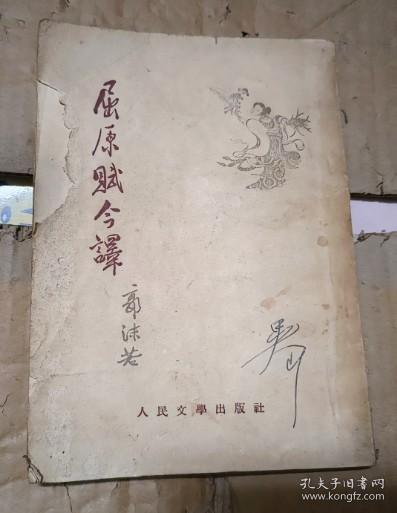 屈原賦今譯
郭沫若
人民文學出版社
孔夫子旧书网
www.kongfz.com